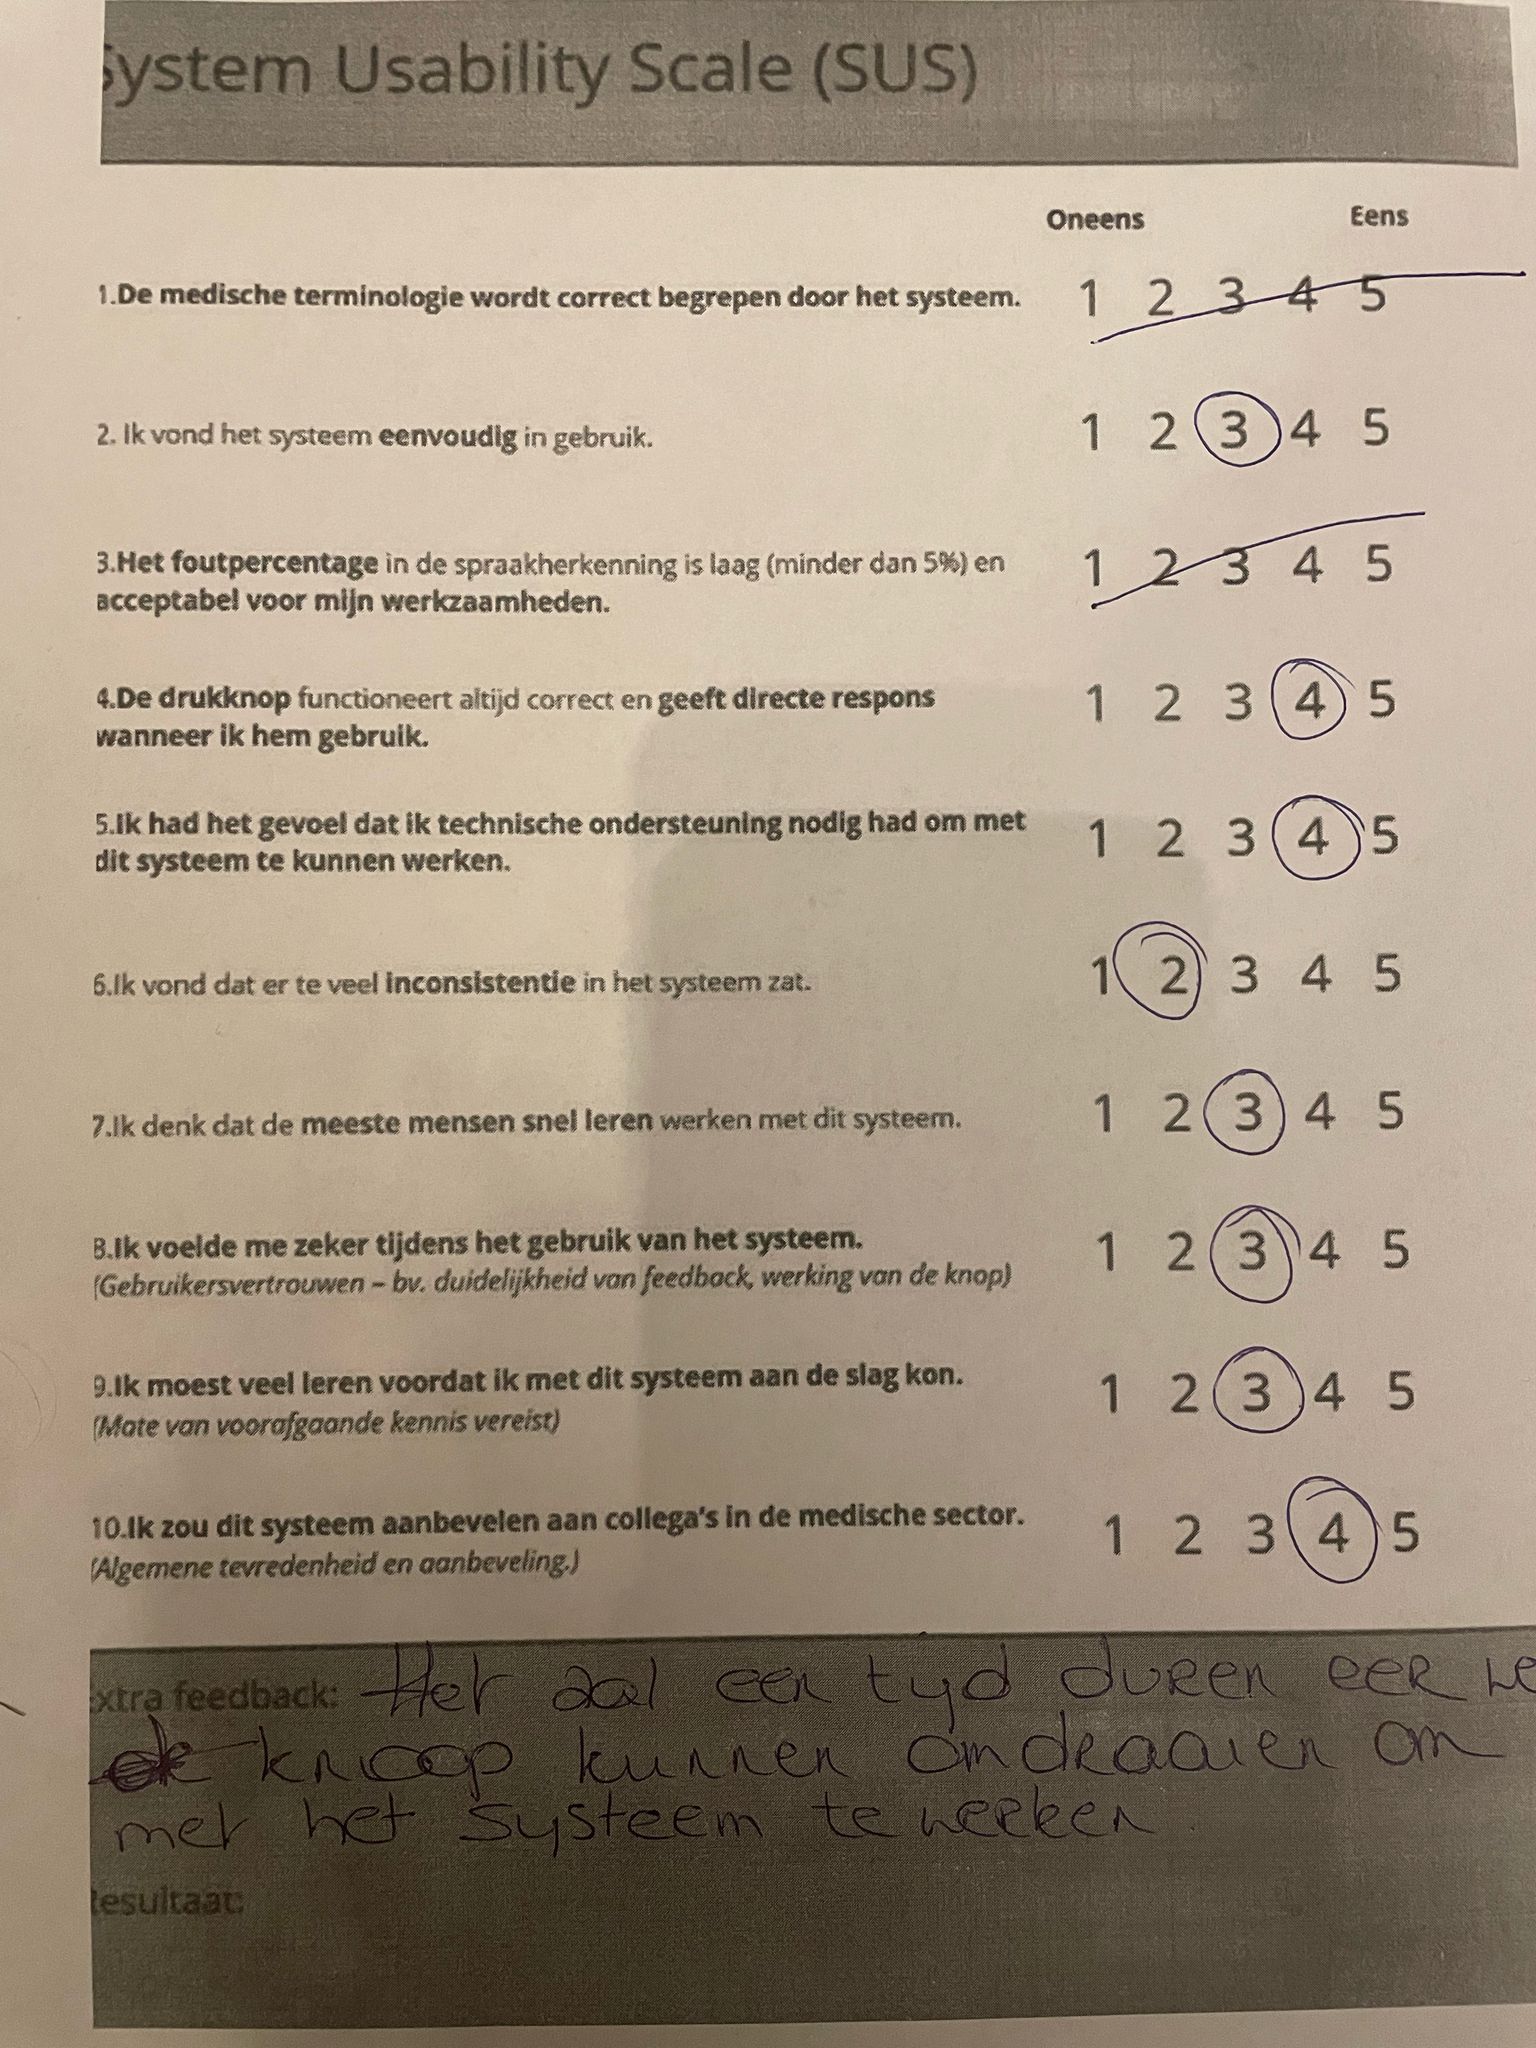 System Usability Scale (SUS)
Oneens Eens
1.De medische terminologie wordt correct begrepen door het systeem. 1 2 3 4 5
2. Ik vond het systeem eenvoudig in gebruik. 1 2 3 4 5
3.Het foutpercentage in de spraakherkenning is laag (minder dan 5%) en 1 2 3 4 5
acceptabel voor mijn werkzaamheden.
4.De drukknop functioneert altijd correct en geeft directe respons 1 2 3 4 5
wanneer ik hem gebruik.
5.Ik had het gevoel dat ik technische ondersteuning nodig had om met 1 2 3 4 5
dit systeem te kunnen werken.
6.Ik vond dat er te veel inconsistentie in het systeem zat. 1 2 3 4 5
7.Ik denk dat de meeste mensen snel leren werken met dit systeem. 1 2 3 4 5
8.Ik voelde me zeker tijdens het gebruik van het systeem. 1 2 3 4 5
(Gebruikersvertrouwen – bv. duidelijkheid van feedback, werking van de knop)
9.Ik moest veel leren voordat ik met dit systeem aan de slag kon. 1 2 3 4 5
(Mate van voorafgaande kennis vereist)
10.Ik zou dit systeem aanbevelen aan collega's in de medische sector. 1 2 3 4 5
(Algemene tevredenheid en aanbeveling.)
Extra feedback: Het zal een tijd duren eer we
knoop kunnen omdraaien om
met het systeem te werken.
Resultaat: